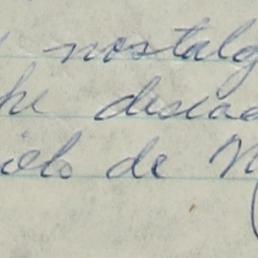 nostalg
he desea
ielo de